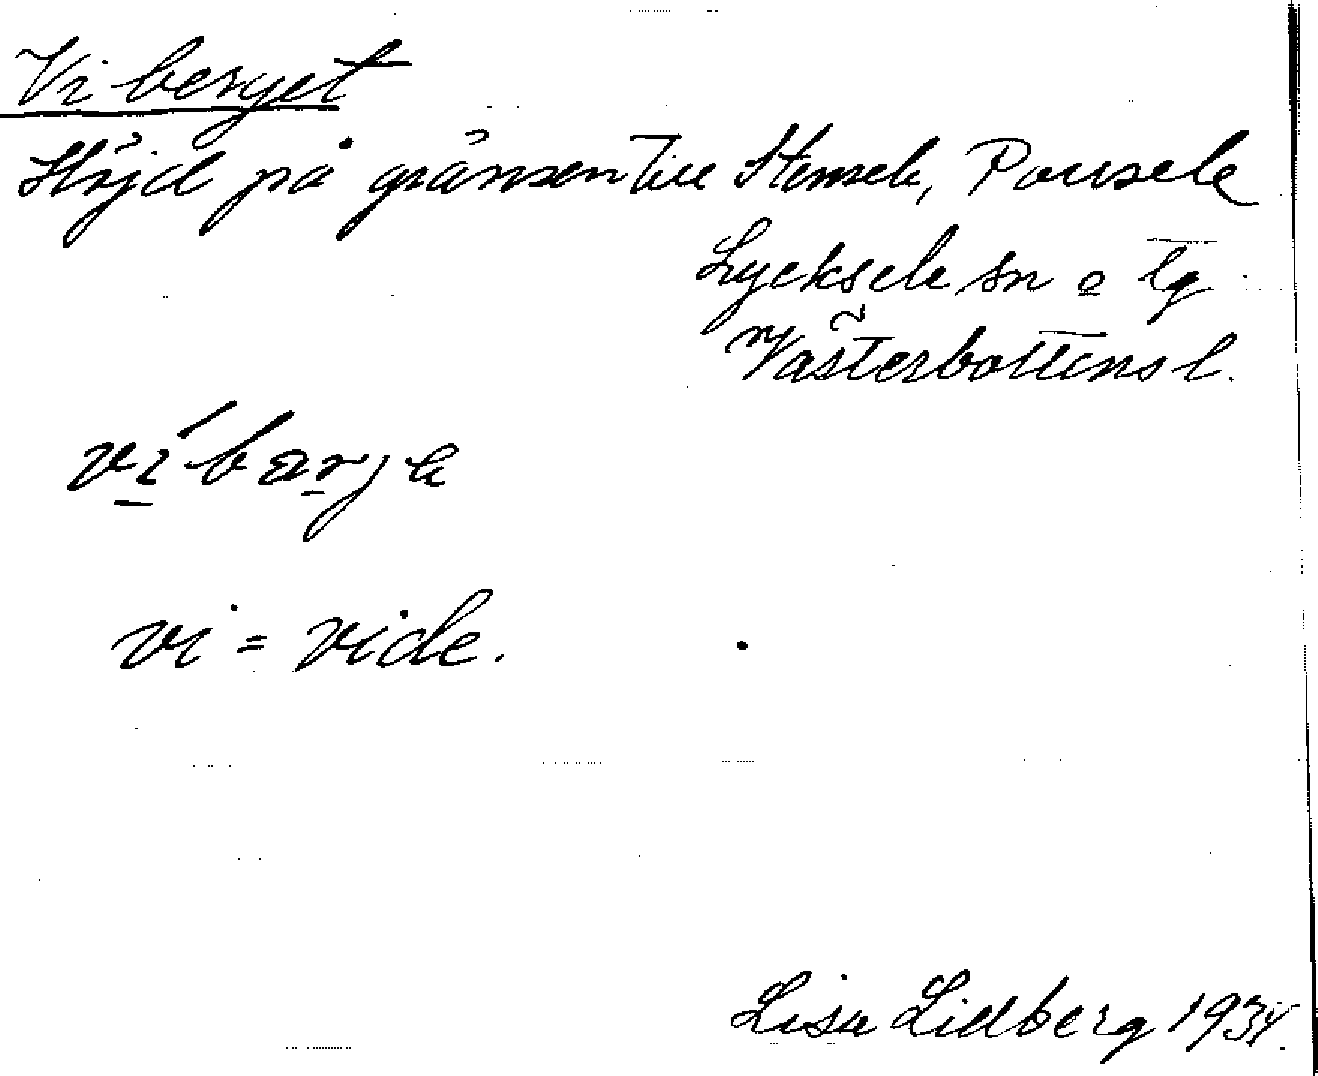 Viberget
Höjd på gränsen till Stensele, Pausele
Lycksele sn o lg
Västerbottens l.
vi = vide.
Lisa Lidberg 1934.